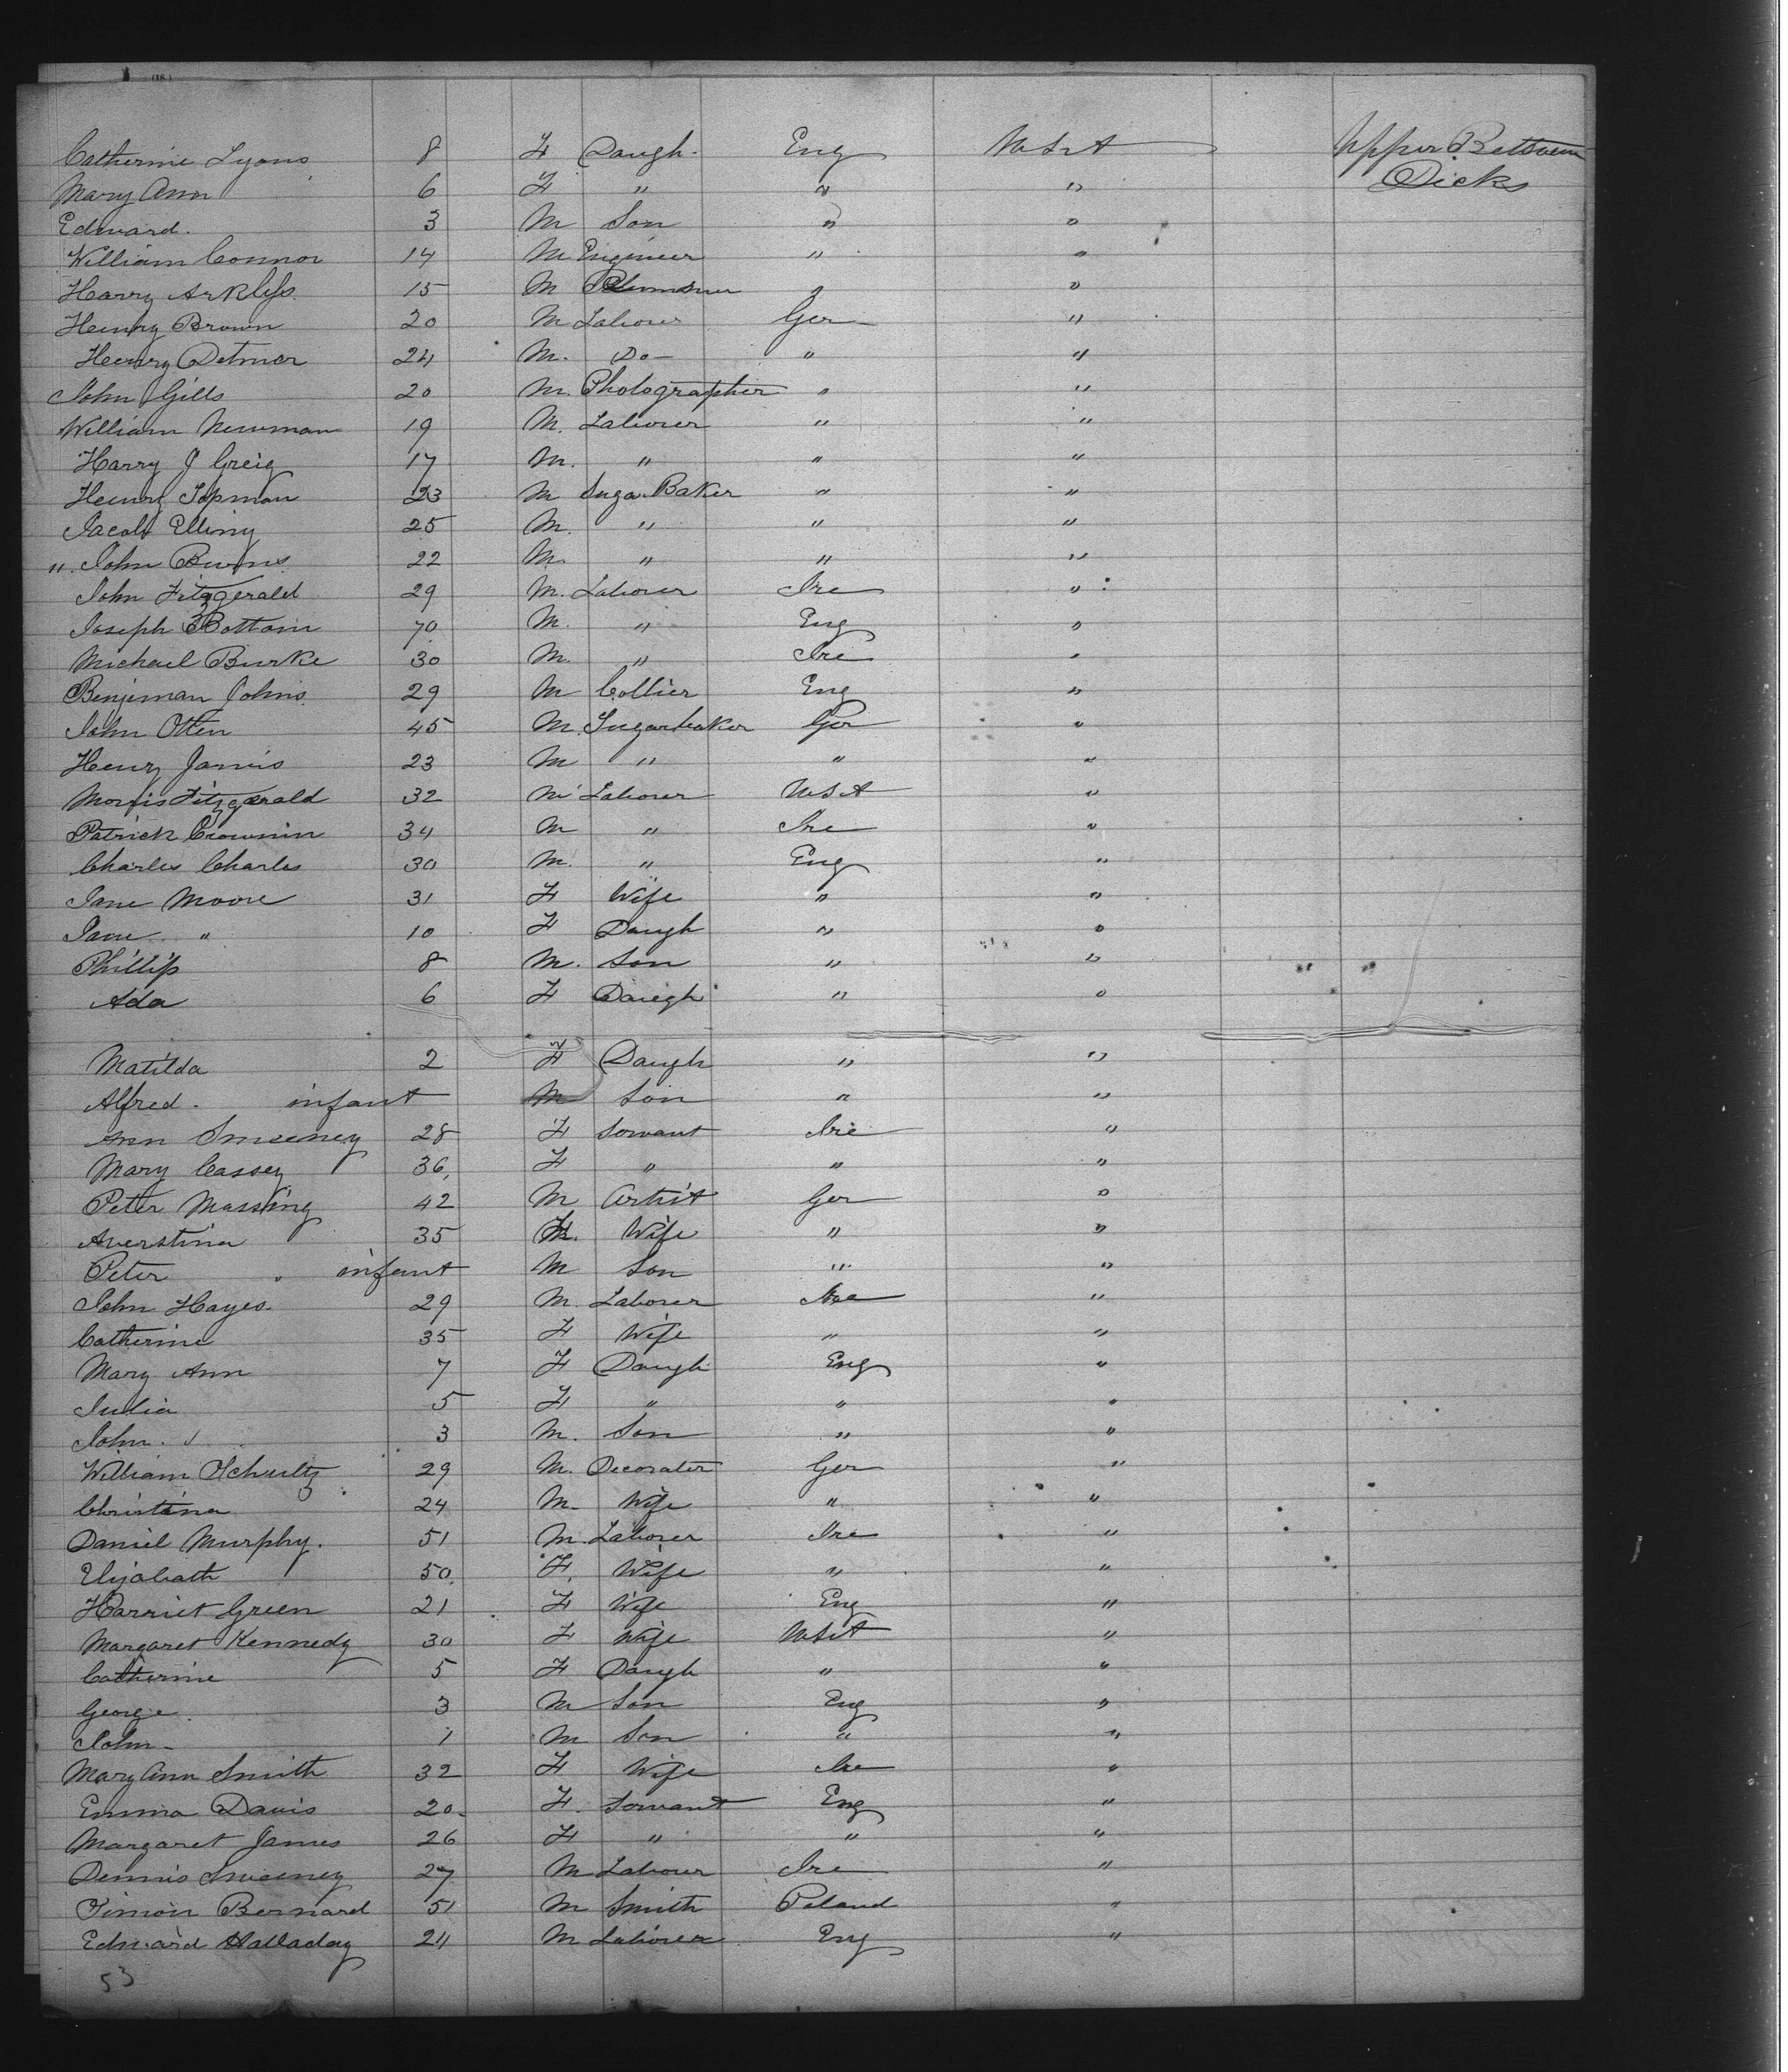 Catherine Lyons 8 F Daugh. Eng U.S.A Upper Between
Mary Ann 6 F " " " Decks
Edward. 3 M Son " "
William Connor 14 M Engineer " "
Harry 15 M " "
Henry Brown 20 M Laborer Ger "
Henry Detmar 24 M. Do " "
John Gills 20 M. Photographer " "
William Newman 19 M. Laborer " "
Harry J Greig 17 M. " " "
Henry Topman 23 M Sugar Baker " "
Jacob Elling 25 M. " " "
" John Burns. 22 M. " " "
John Fitzgerald 29 M. Laborer Ire "
Joseph Bottom 70 M. " Eng "
Michael Burke 30 M. " Ire "
Benjiman Johns. 29 M Collier Eng "
John Otten 45 M. Sugarbaker Ger "
Henry Jamis 23 M " " "
Morris Fitzgerald 32 M Laborer U.S.A "
Patrick Crownin 34 M " Ire "
Charles Charles 30 M. " Eng "
Jane Moore 31 F Wife " "
Jane " 10 F Daugh " "
Phillip 8 M. Son " "
Ada 6 F Daugh " "
Matilda 2 F Daugh " "
Alfred. infant M Son " "
Ann Smeeney 28 F Servant Ire "
Mary Cassey 36 F " " "
Peter Massing 42 M Artist Ger "
Averstina 35 F. Wife " "
Peter " infant M Son " "
John Hayes. 29 M. Laborer Ire "
Catherine 35 F Wife " "
Mary Ann 7 F Daugh Eng "
Julia 5 F " " "
John. 3 M. Son " "
William Schultz 29 M. Decorater Ger "
Christina 24 M. Wife " "
Daniel Murphy. 51 M. Laborer Ire "
Elizabath 50 F. Wife " "
Harriet Green 21 F Wife Eng "
Margaret Kennedy 30 F Wife U.S.A "
Catherine 5 F Daugh " "
George 3 M Son Eng "
John 1 M Son " "
Mary Ann Smith 32 F Wife Ire "
Emma Davis 20 F. Servant Eng "
Margaret James 26 F " " "
Dennis Sweeney 27 M Laborer Ire "
Simon Bernard 51 M Smith Poland "
Edward Halladay 24 M Laborer Eng "
53